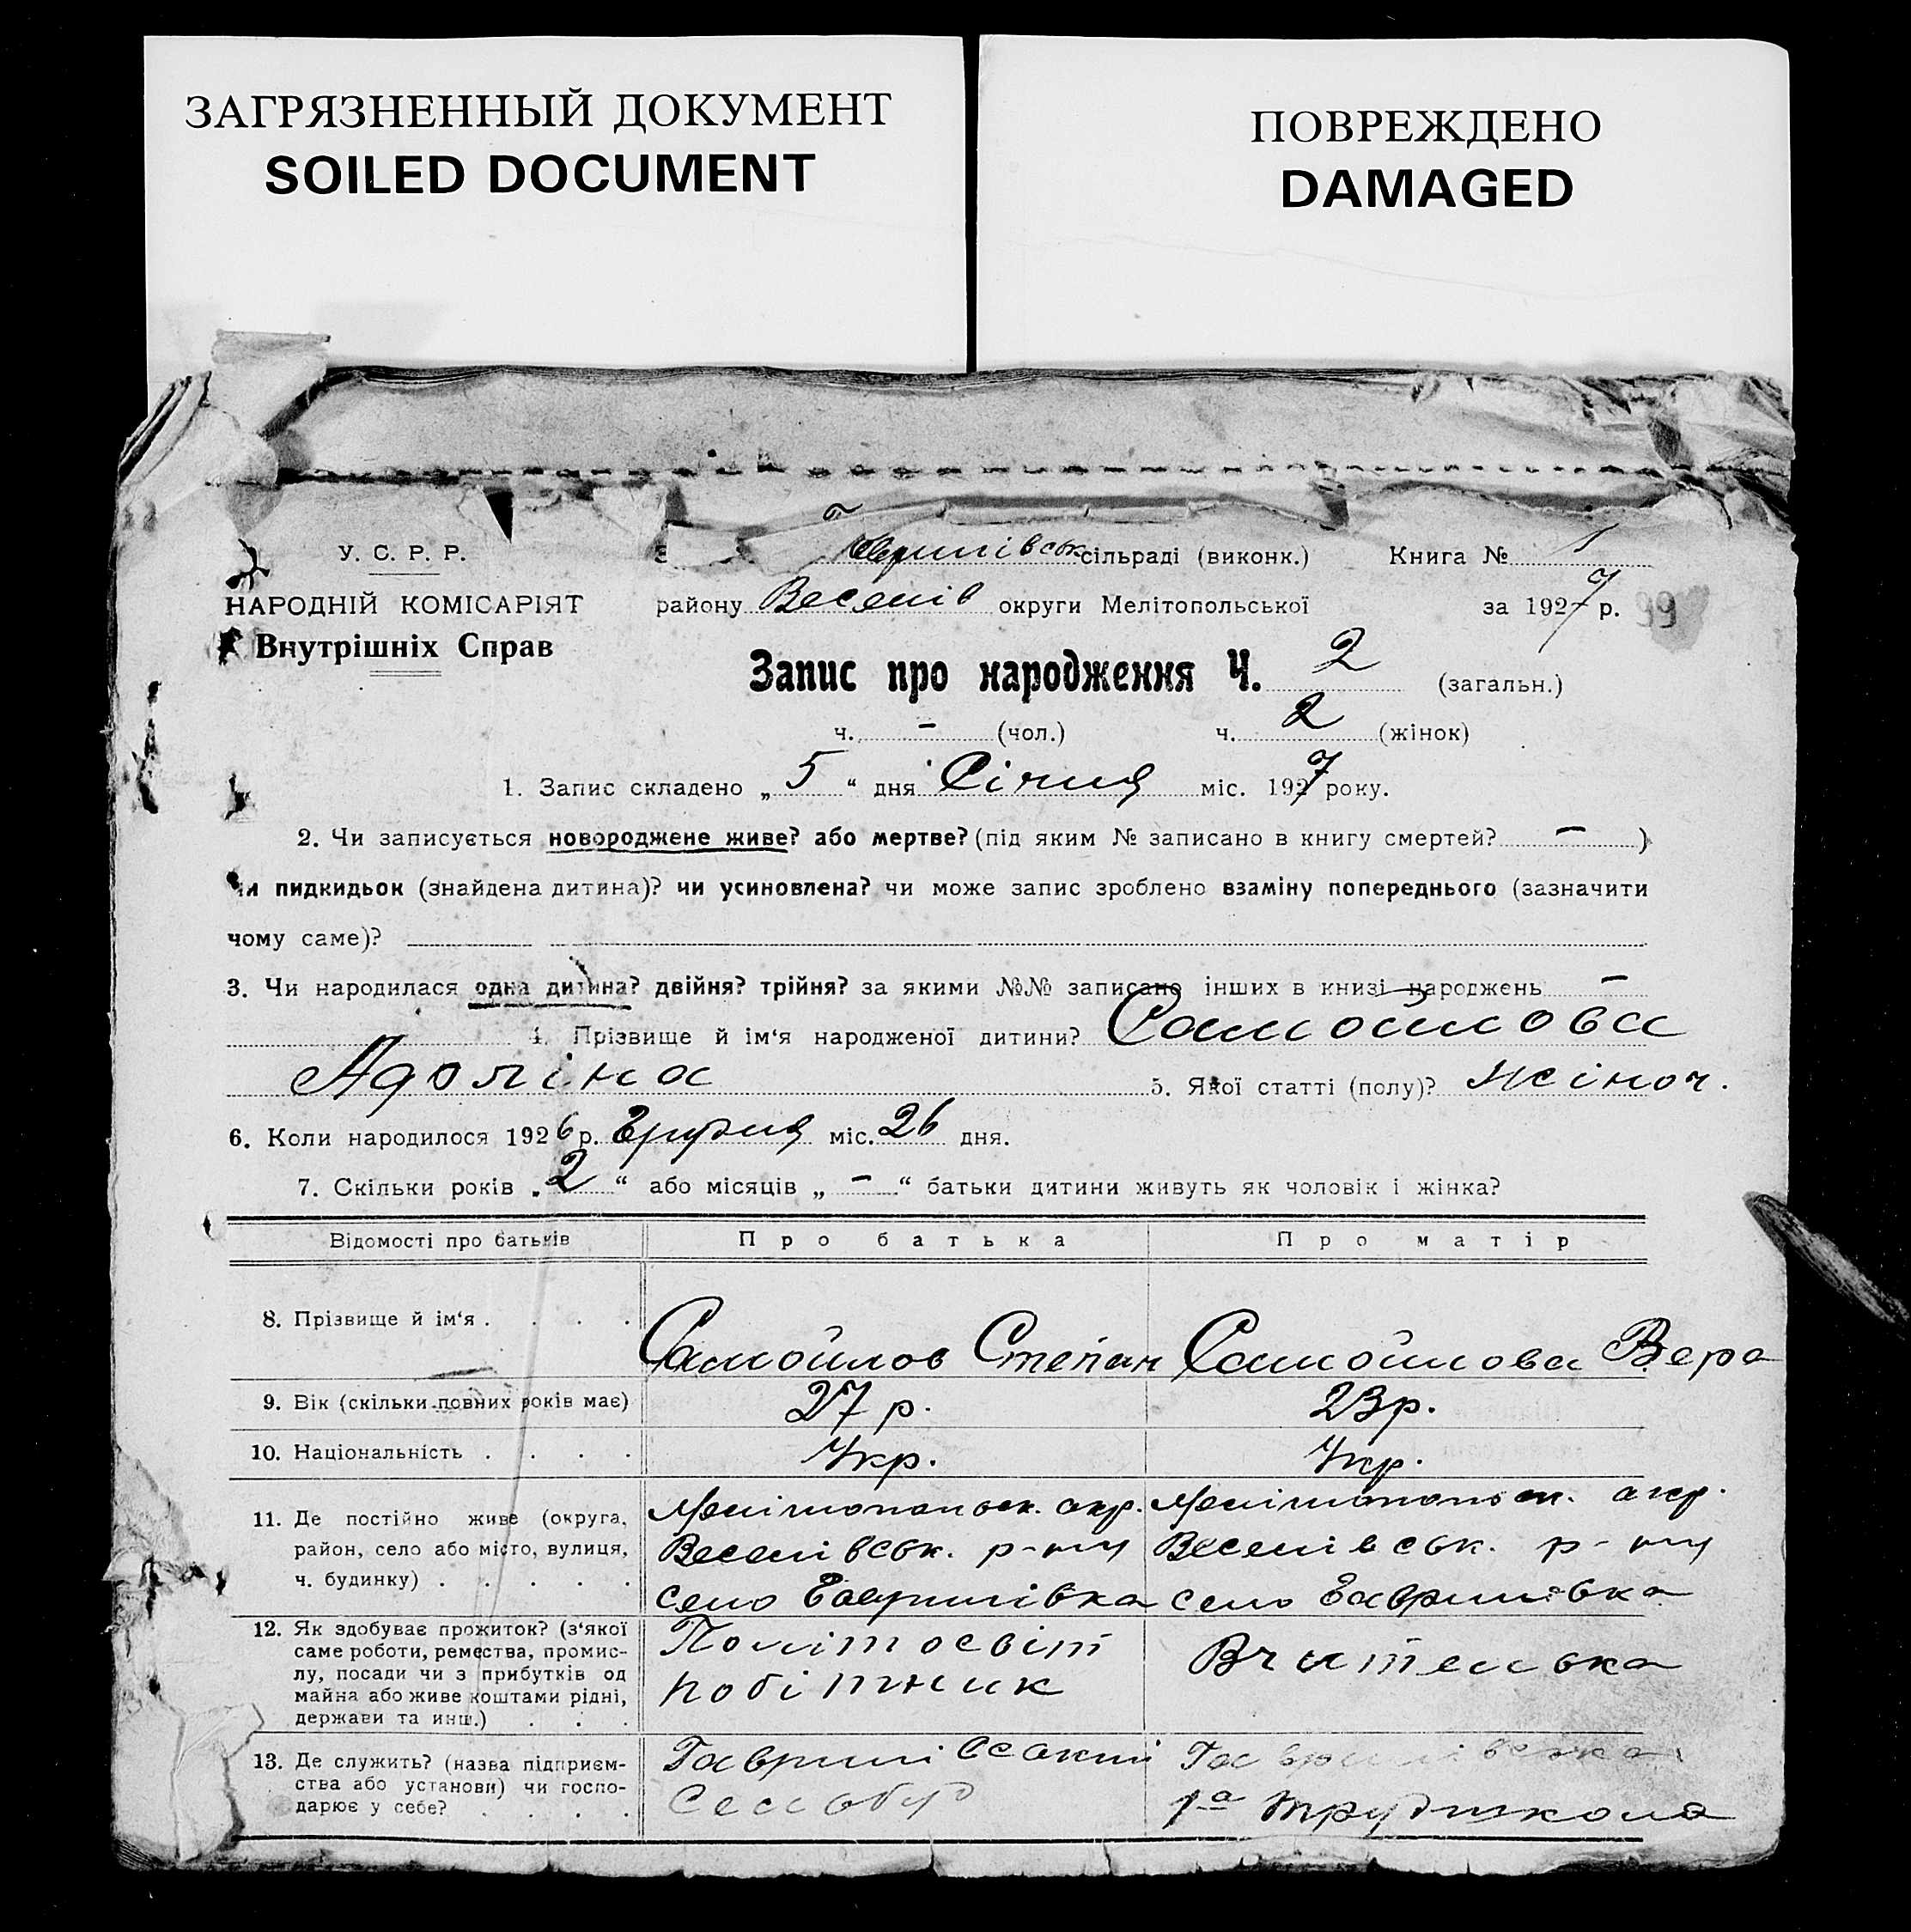 ЗАГРЯЗНЕННЫЙ ДОКУМЕНТ
SOILED DOCUMENT
ПОВРЕЖДЕНО
DAMAGED
У. С. Р. Р.
НАРОДНІЙ КОМІСАРІЯТ
Внутрішніх Справ
сільраді (виконк.) Книга № 1
району Веселів округи Мелітопольської за 1927 р. 99
Запис про народження Ч. 2 (загальн.)
ч. – (чол.) ч. 2 (жінок)
1. Запис складено „ 5 “ дня Січня міс. 1927 року.
2. Чи записується новороджене живе? або мертве? (під яким № записано в книгу смертей? – )
чи пидкидьок (знайдена дитина)? чи усиновлена? чи може запис зроблено взаміну попереднього (зазначити
чому саме)?
3. Чи народилася одна дитина? двійня? трійня? за якими №№ записано інших в книзі народжень –
4. Прізвище й ім‘я народженої дитини? Самойлова
Адоліна 5. Якої статті (полу)? жіноч.
6. Коли народилося 1926 р. Грудня міс. 26 дня.
7. Скільки років „ 2 “ або місяців „ – “ батьки дитини живуть як чоловік і жінка?
Відомості про батьків Про батька Про матір
8. Прізвище й ім‘я . . . . Самойлов Степан Самойлова Вера
9. Вік (скільки повних років має) 27 р. 23 р.
10. Національність . . . . Укр. Укр.
11. Де постійно живе (округа, Мелітопольск. окр. Мелітопольск. окр.
район, село або місто, вулиця, Веселівськ. р-ну Веселівськ. р-ну
ч. будинку) . . . . . село Гаврилівка село Гаврилівка
12. Як здобуває прожиток? (з‘якої Політосвіт Вчителька
саме роботи, ремества, промис- робітник
лу, посади чи з прибутків од
майна або живе коштами рідні,
держави та инш.) . . .
13. Де служить? (назва підприєм- Гаврилівський Гаврилівська
ства або установи) чи госпо- Сельбуд 1а трудшкола
дарює у себе? . . . .